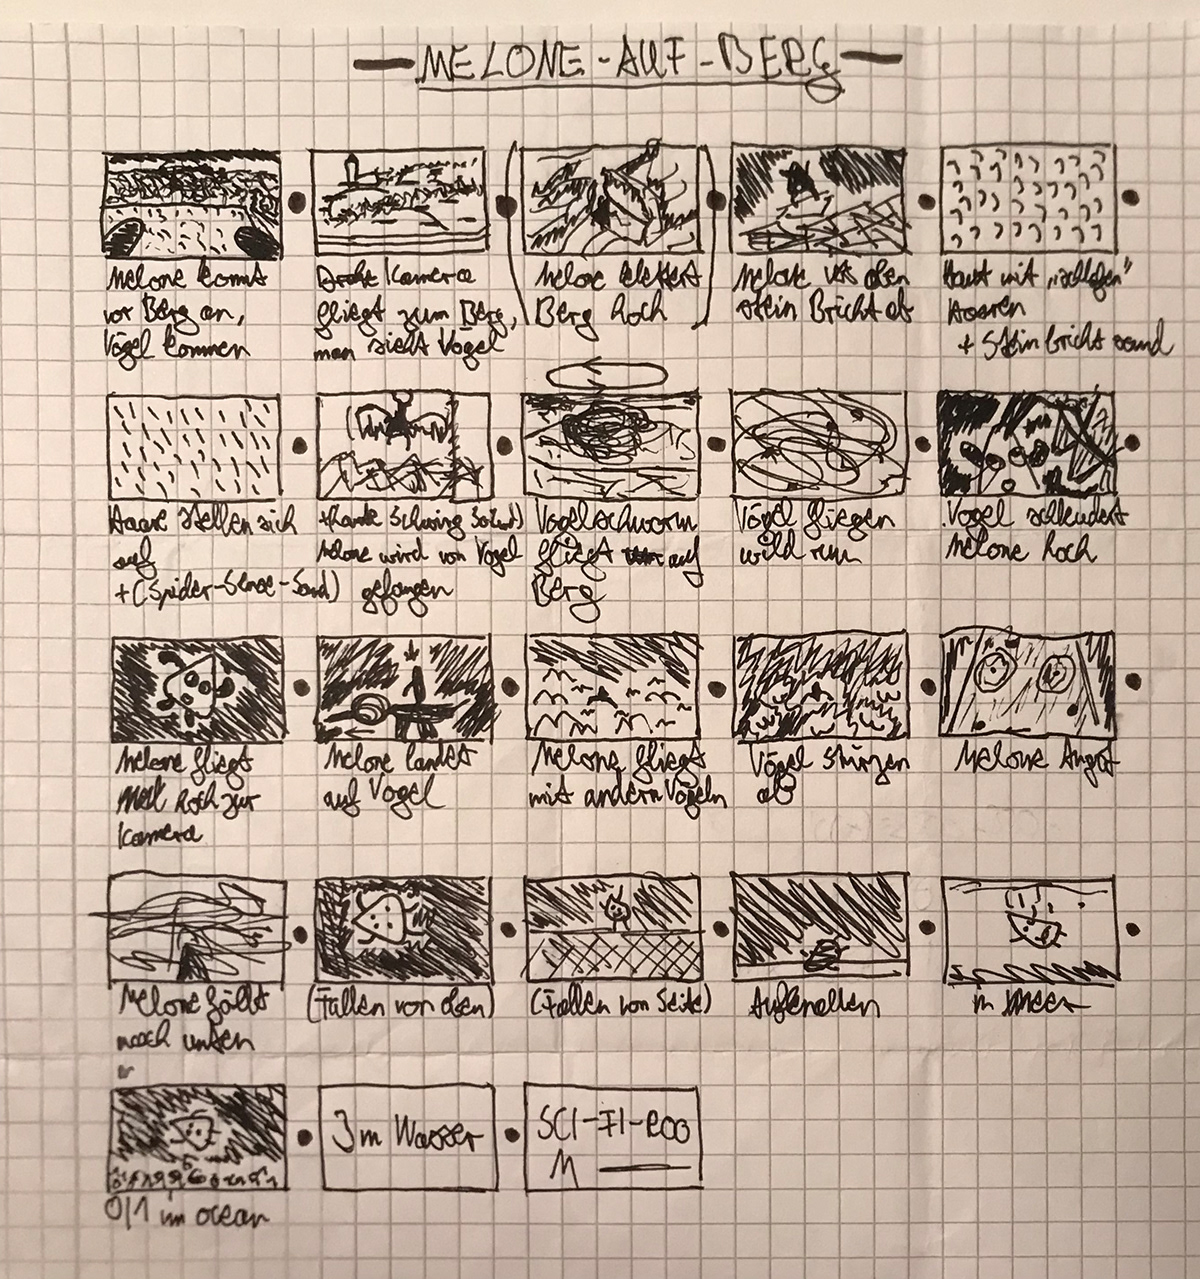 MELONE-AUF-BERG
Melone kommt
vor Berg an,
Vögel kommen
Drohe Kamera
fliegt zum Berg,
man sieht Vögel
Melone klettert
Berg hoch
Melone ist oben
Stein Bricht ab
Haut mit „schlafen"
Haaren
+ Stein bricht sound
Haare stellen sich
auf
+(Spider-Sense-Sound)
Schwing Sound)
Melone wird von Vögel
gefangen
Vogelschwarm
fliegt auf
Berg
Vögel fliegen
wild rum
Vogel schleudert
Melone hoch
Melone fliegt
hoch zur
Kamera
Melone landet
auf Vogel
Melone fliegt
mit andern Vögeln
Vögel stürzen
ab
Melone Angst
Melone fällt
nach unten
(Fallen von oben)
(Fallen von Seite)
Aufknallen
in
3m Wasser
SCI-FI-ROO
M
0/1 im ocean